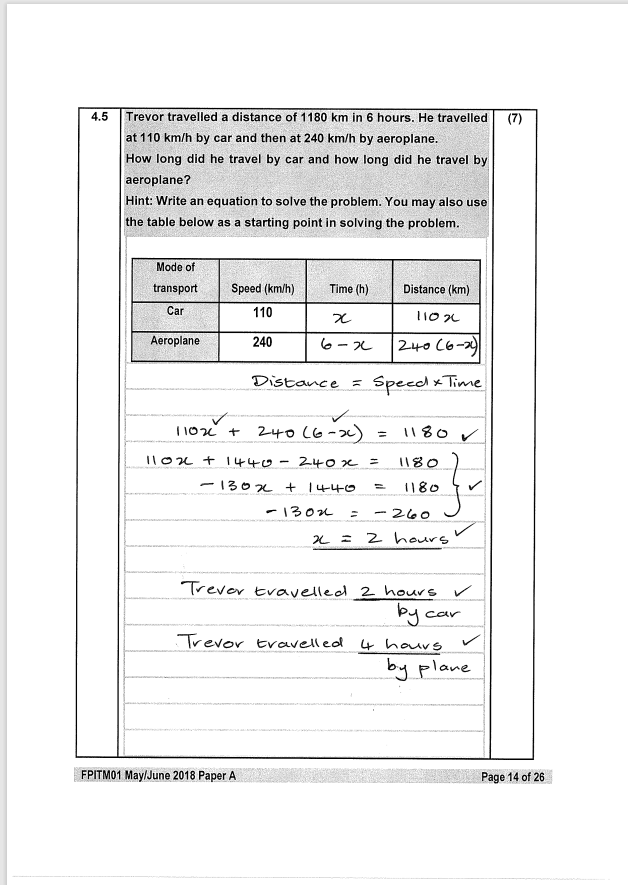 4.5 Trevor travelled a distance of 1180 km in 6 hours. He travelled (7)
at 110 km/h by car and then at 240 km/h by aeroplane.
How long did he travel by car and how long did he travel by
aeroplane?
Hint: Write an equation to solve the problem. You may also use
the table below as a starting point in solving the problem.
Mode of
transport Speed (km/h) Time (h) Distance (km)
Car 110 x 110x
Aeroplane 240 6 - x 240(6-x)
Distance = Speed × Time
110x ✓ + 240(6-x) ✓ = 1180 ✓
110x + 1440 - 240x = 1180
-130x + 1440 = 1180 ✓
-130x = -260
x = 2 hours ✓
Trevor travelled 2 hours ✓
by car
Trevor travelled 4 hours ✓
by plane
FPITM01 May/June 2018 Paper A Page 14 of 26